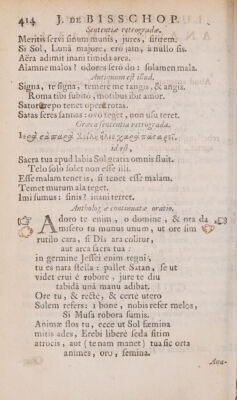 414 J. DE BISSCHOP.
Sententiæ retrogradæ.
Meritis servi sinum munis, jures, sitirem.
Si Sol, Luna majore, ero jam, a nullo sis.
Aëra admit inani timida area.
Alamne malos? odores sero do: solamen mala.
Antiquum est illud.
Signa, te signa, temere me tangis, & angis.
Roma tibi subito, motibus ibit amor.
Sator arepo tenet opera rotas.
Satas feres sanctos: ovo teget, non usu teret.
Græca sententia retrograda.
id est,
Sacra tua apud labia Sol gratia omnis fluit.
Telo solo solet non esse illi.
Esse malam tenet is, si tenet esse malam.
Temet murum ala teget.
Imi sumus: finis! inani terret.
Anthologiæ continuatæ oratio.
Adoro te enim, o domine, & ora da
misero tu munus unum, ut ore sim
rutilo cara, si Dis ara colitur,
aut arca sacra tua:
in germine Jessei enim regni;
tu es nata stella: pallet Satan, se ut
videt erui è robore, jure te diu
tabida una manu adibat.
Ore tu, & rectè, & certe utero
Solem refers: è bone, nobis refer melos,
Si Musa robora sumis.
Animæ flos tu, ecce ut Sol fœmina
mitis ades, Erebi liberè seda sitim
atrocis, aut (tenam manet) tua sic orta
animes, oro, femina.
Ana-